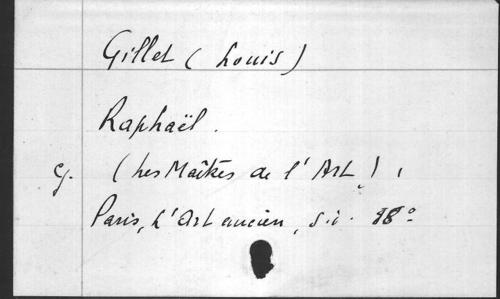 Gillet (Louis)
Raphaël.
G. (Les Maîtres de l'Art),
Paris, L'Art ancien, s.i. 18°